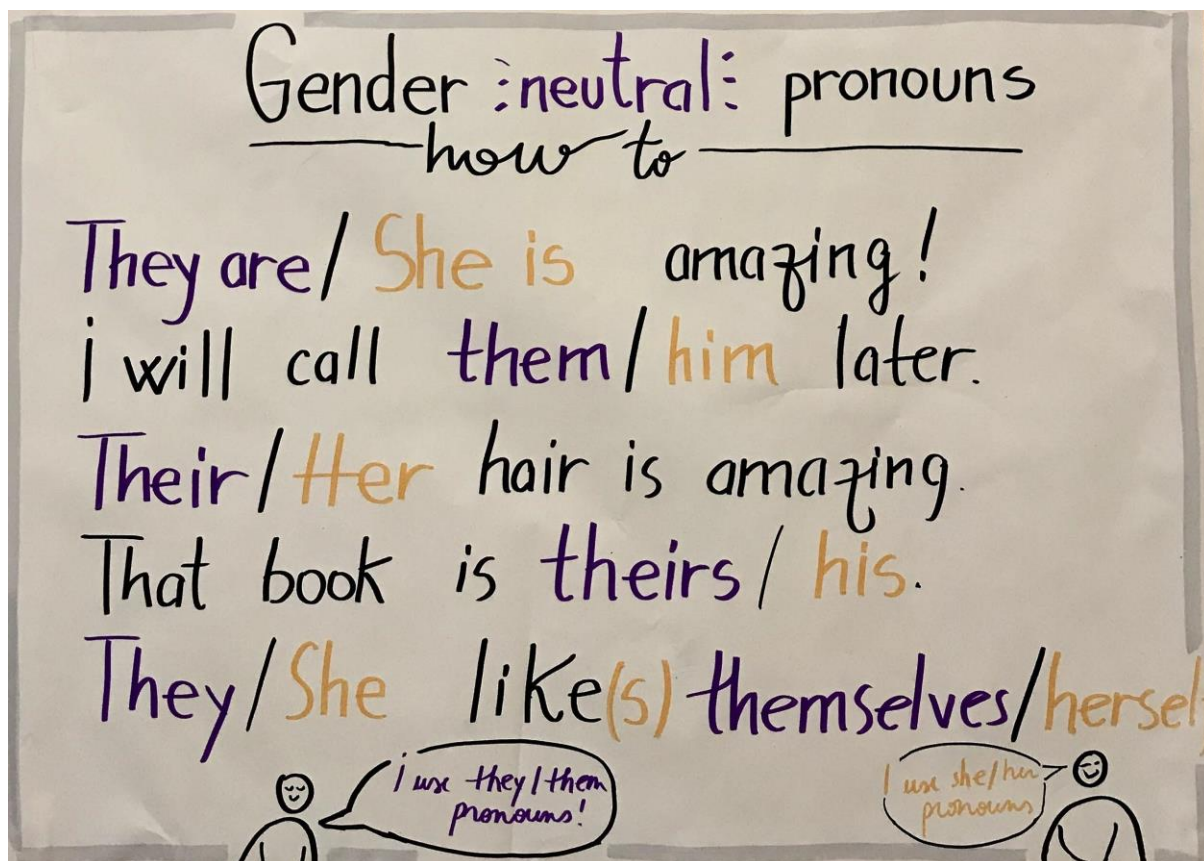 Gender neutral pronouns
how to
They are/ She is amazing!
i will call them/him later.
Their/Her hair is amazing.
That book is theirs/ his.
They/She like(s) themselves/hersel
i use they/them
pronouns!
I use she/her
pronouns